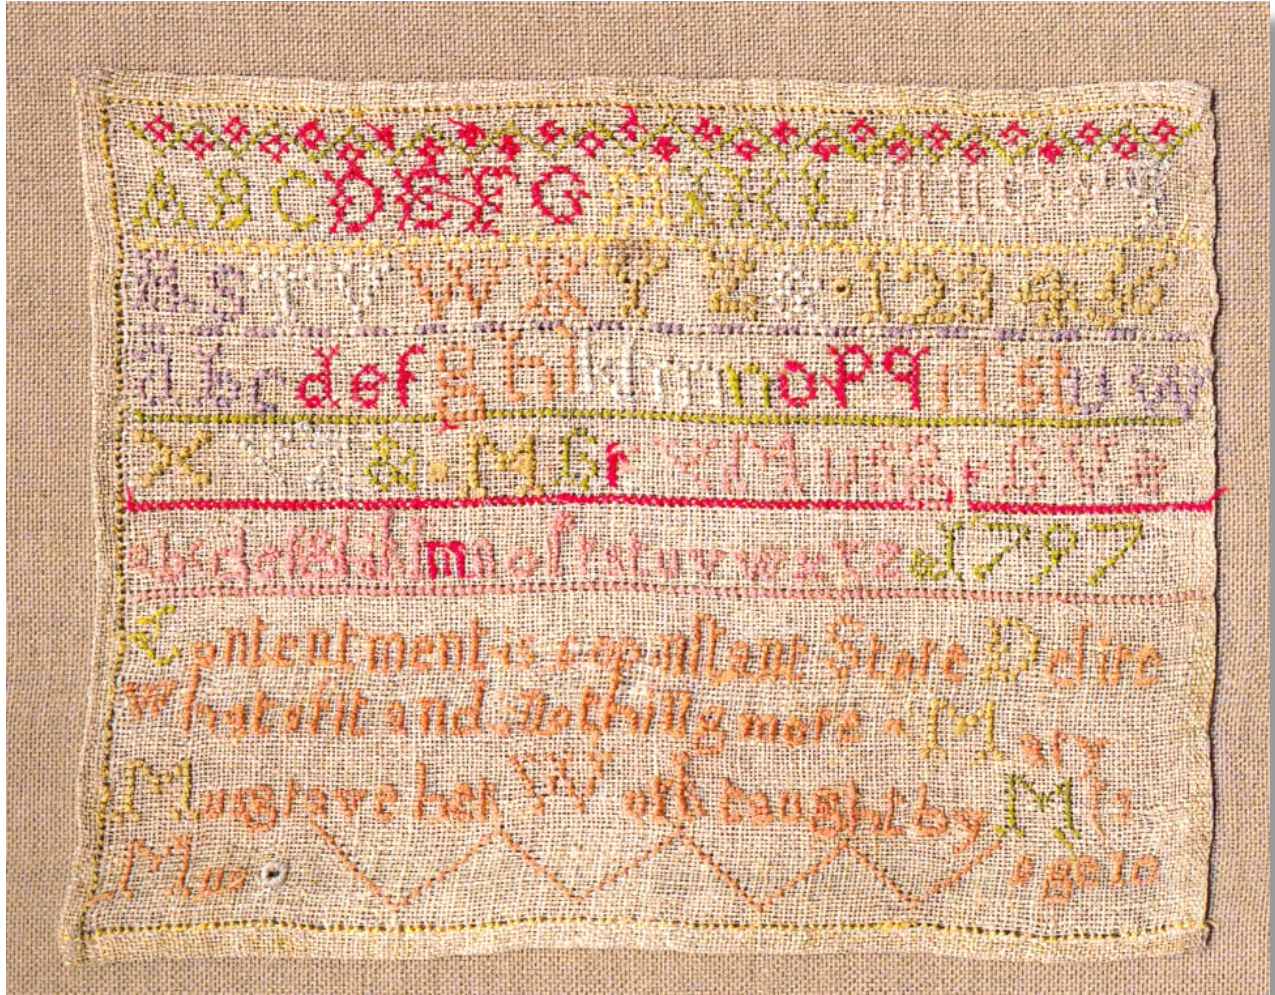 A B C D E F G H I K L m n o P
R S T V W X Y Z & · 1 2 3 4 5 6
a b c d e f g h i k l m n o p q r ſ s t u w
X & · M G r Y M Musg r G V e
a b c d e f g h i k l m n o ſ r s t u v w x y z 1797
Contentment is a conſtant Store Deſire
What s fit and Nothing more · Mary
Musgrave her Work taught by Mrs
Mus age 10